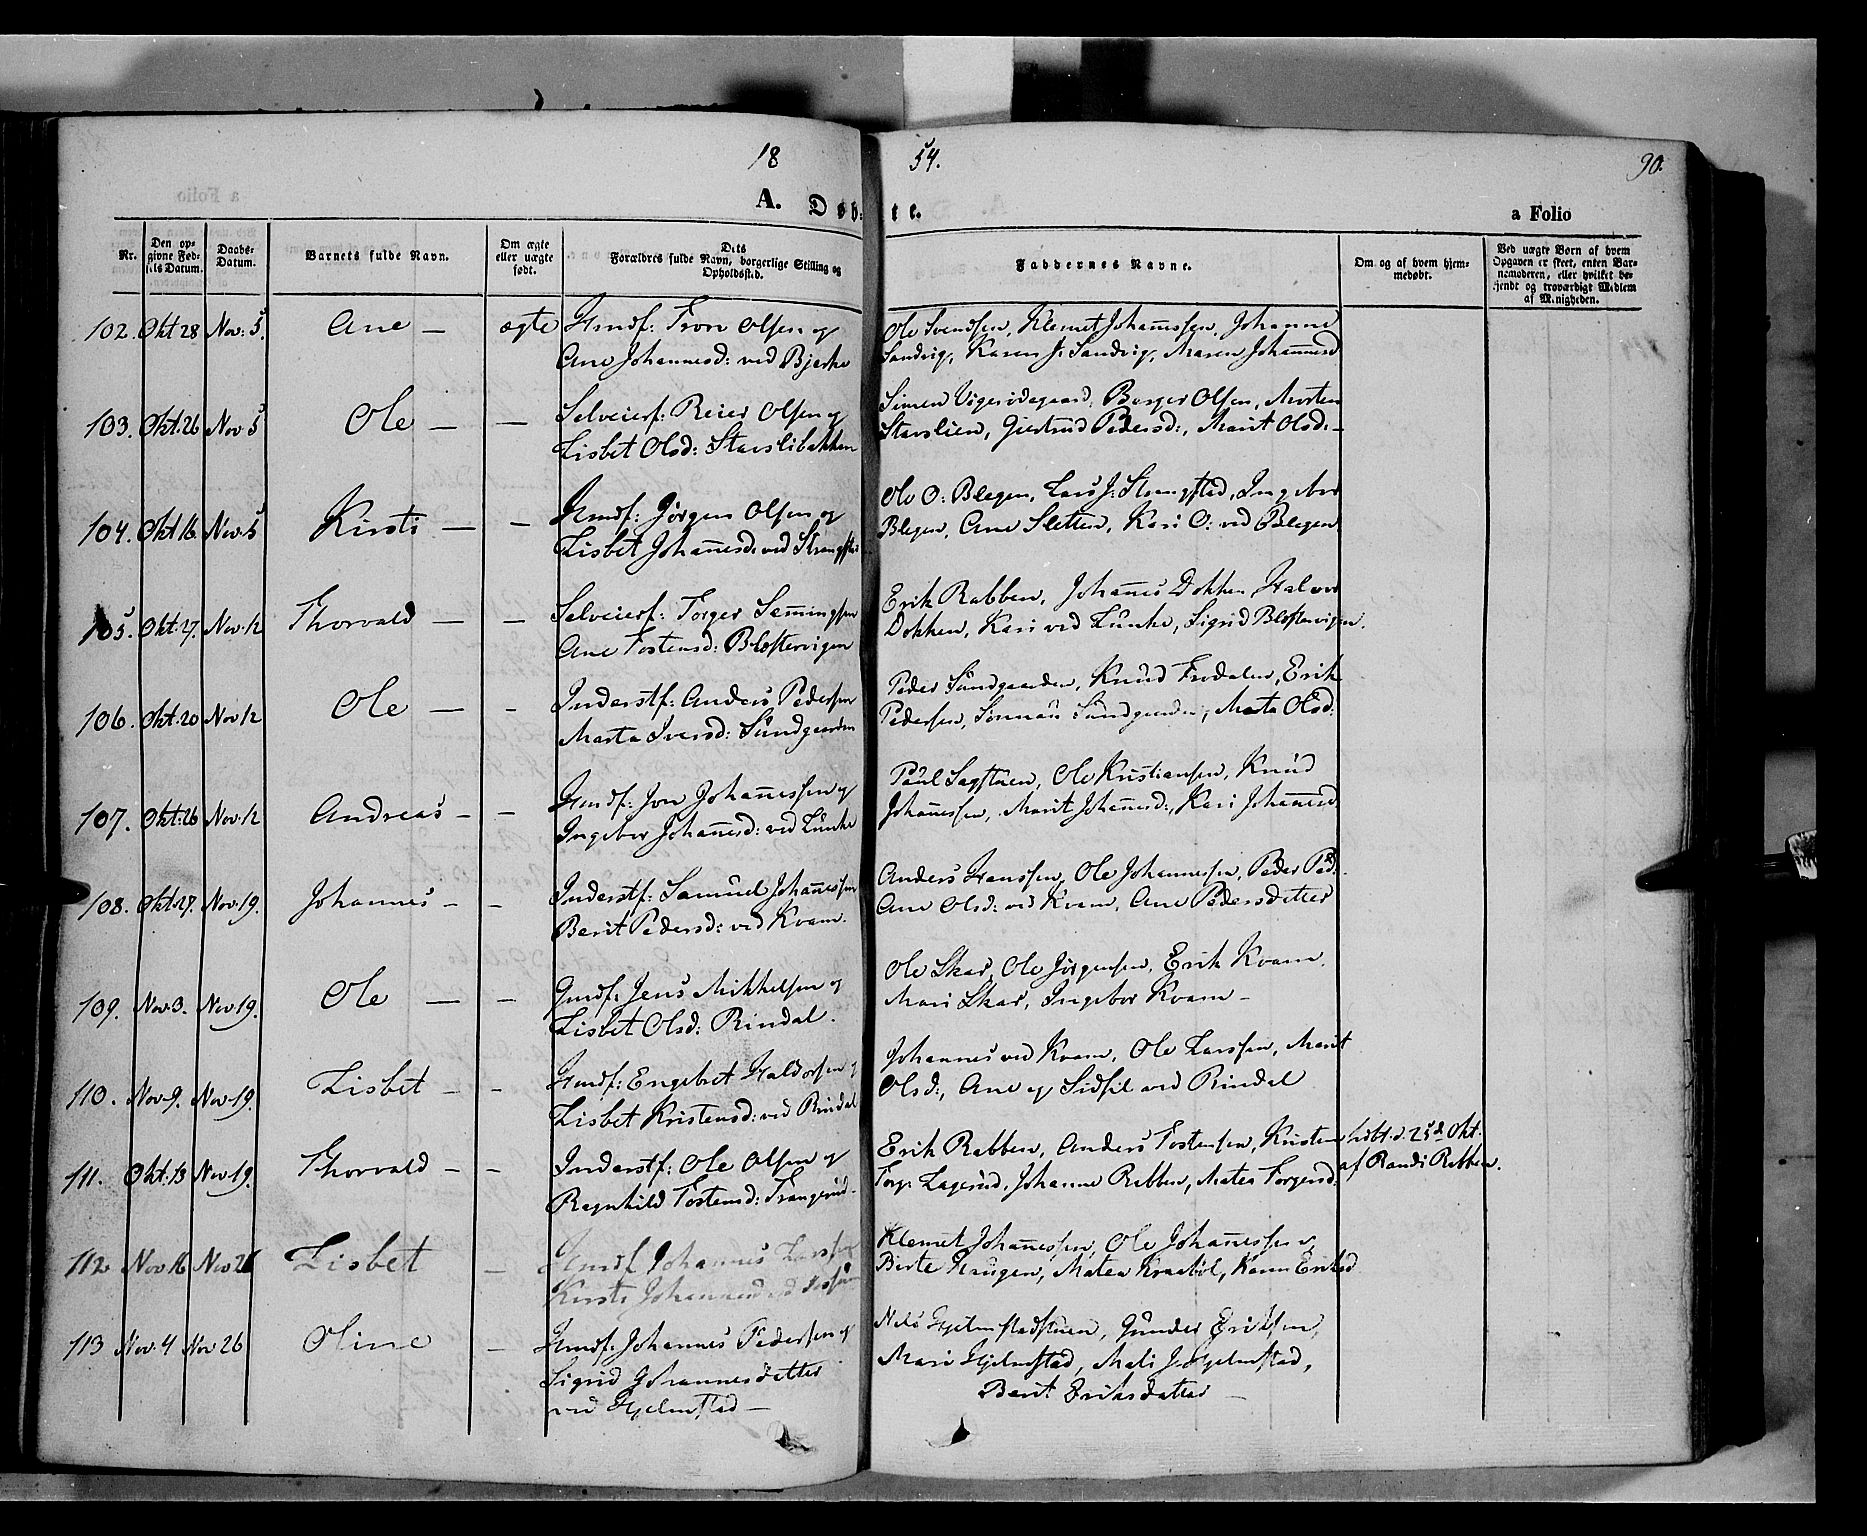 18 54. 90.
A. Døbte. a Folio
Nr. Den opgivne Fødsels Datum. Daabs-Datum. Barnets fulde Navn. Om ægte eller uægte født. Dets Forældres fulde Navn, borgerlige Stilling og Opholdssted. Faddernes Navne. Om og af hvem hjemmedøbt. Ved uægte Børn af hvem Opgaven er skeet, enten Barnemoderen, eller hvilket bekjendt og troværdigt Medlem af Menigheden.
102. Okt 28 Nov: 5. Ane — ægte Hmdf: Tron Olsen og Ole Svendsen, Klemet Johannssen, Johanne
Ane Johannesd: ved Bjerke Sandvig, Karen J: Sandvig, Maren Johannesd
103. Okt. 26 Nov 5 Ole — — Selveierf: Reier Olsen og Simen Vigerødegaard, Berger Olsen, Morten
Lisbet Olsd: Stavslibakken Stavslien, Giertrud Pedersd:, Marit Olsd: —
104. Okt 16. Nov. 5 Kirsti — — Hmdf: Jørgen Olsen og Ole O: Blegen, Lars J: Strangstad, Ingebor
Lisbet Johañesd: ved Blegen, Ane Sletten, Kari O: ved Blegen
105. Okt: 27. Nov. 12 Thorvald — — Selveierf: Torger Sæmingsen Erik Rabben, Johañes Dokken, Halvor
Ane Tostensd: Blostervigen Dokken, Kari ved Lunke, Sigrid Blostervigen.
106. Okt. 20 Nov 12 Ole — — Inderstf: Anders Pedersen Peder Sundgaarden, Knud Frodalen, Erik
Marta Iversd: Sundgaarden Pedersen, Sundgaarden, Mata Olsd:
107. Okt: 26 Nov. 12 Andreas — — Hmdf: Jon Johañessen og Paul Sagstuen, Ole Kristiansen, Knud
Ingebor Johañesd: ved Lunke Johañessen, Marit Johañesd:, Kari Johañesd
108. Okt. 27. Nov. 19. Johannes — — Inderstf: Samuel Johañessen Anders Hanssen, Ole Johannesen, Peder Ped:
Berit Pedersd: ved Kvam. Ane Olsd: ved Kvam, Ane Pedersdatter
109. Nov. 3. Nov 19. Ole — — Gmdf: Jens Mikkelsen og Ole Skar, Ole Jørgensen, Erik Kvam.
Lisbet Olsd: Rindal. Mari Skar, Ingebor Kvam —
110. Nov. 9. Nov. 19. Lisbet — — Hmdf: Engebret Haldorsen og Johannes ved Kvam, Ole Larssen, Marit
Lisbet Kristensd: ved Rindal Olsd:, Ane og Sidsil ved Rindal
111. Okt: 13 Nov. 19. Thorvald — — Inderstf: Ole Olsen og Erik Rabben, Anders Tostensen, Kristen hdbt. d. 25d Okt.
Ragnhild Tostensd: Trangrud. Torg: Lagerud, Johanne Rabben, Matea Torgersd: af Randi Rabben.
112 Nov 16 Nov 26 Lisbet — Hmdf Johannes Larssen Klemet Johañessen, Ole Johañessen,
Kirsti Johannesd ved Birte Haugen, Matea Kraabøl, Karen Eriksd
113 Nov. 4 Nov 26 Oline — Hmdf: Johannes Pedersen og Nils Hjelmstadstuen, Gunder Eriksen,
Sigrid Johannesdatter Mari Hjelmstad, Mali J. Hjelmstad,
ved Hjelmstad — Berit Eriksdatter —